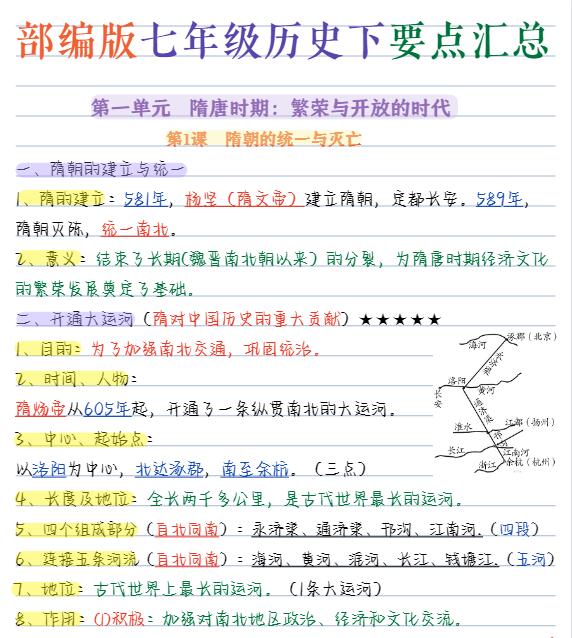 部编版七年级历史下要点汇总
第一单元 隋唐时期：繁荣与开放的时代
第1课 隋朝的统一与灭亡
一、隋朝的建立与统一
1、隋的建立：581年，杨坚（隋文帝）建立隋朝，定都长安。589年，
隋朝灭陈，统一南北。
2、意义：结束了长期(魏晋南北朝以来）的分裂，为隋唐时期经济文化
的繁荣发展奠定了基础。
二、开通大运河（隋对中国历史的重大贡献）★★★★★
1、目的：为了加强南北交通，巩固统治。
2、时间、人物：
隋炀帝从605年起，开通了一条纵贯南北的大运河。
3、中心、起始点：
以洛阳为中心，北达涿郡，南至余杭。（三点）
4、长度及地位：全长两千多公里，是古代世界最长的运河。
5、四个组成部分（自北向南）：永济渠、通济渠、邗沟、江南河.（四段）
6、连接五条河流（自北向南）：海河、黄河、淮河、长江、钱塘江.（五河）
7、地位：古代世界上最长的运河。（1条大运河）
8、作用：(1)积极：加强对南北地区政治、经济和文化交流。
涿郡（北京）
海河
永济渠
洛阳
黄河
长安
通济渠
淮水
江都（扬州）
邗沟
长江
江南河
余杭（杭州）
浙江